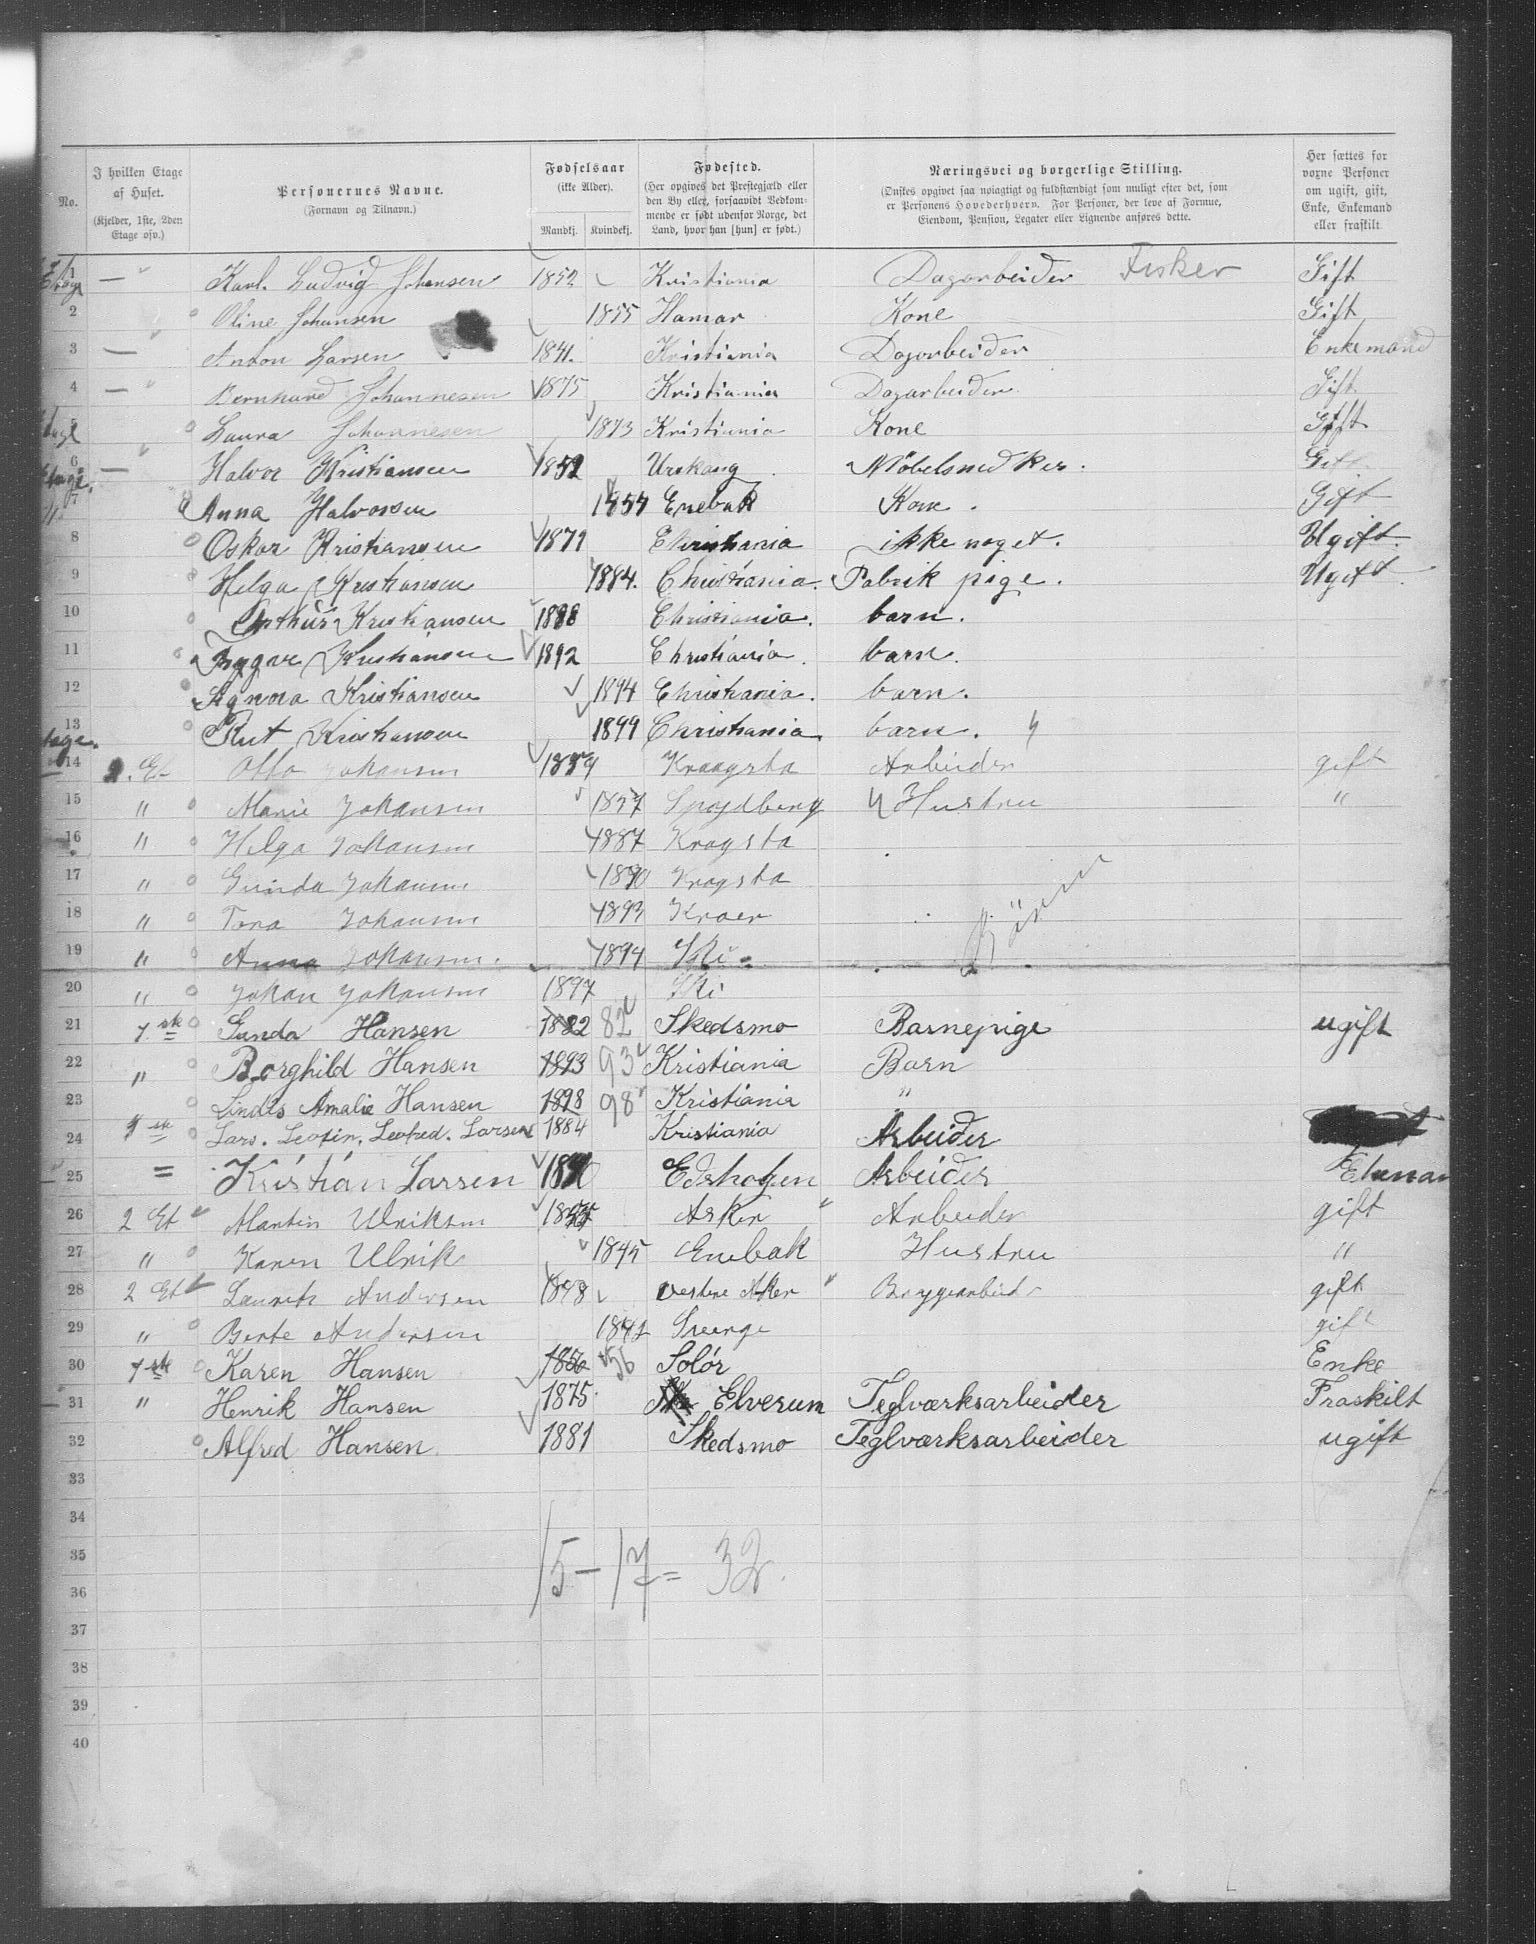 No. I hvilken Etage af Huset. (Kjelder, 1ste, 2den Etage osv.) Personernes Navne. (Fornavn og Tilnavn.) Fødselsaar (ikke Alder). Mandkj. Kvindekj. Fødested. (Her opgives det Prestegjæld eller den By eller, forsaavidt Vedkommende er født udenfor Norge, det Land, hvor han [hun] er født.) Næringsvei og borgerlige Stilling. (Ønskes opgivet saa nøiagtigt og fuldstændigt som muligt efter det, som er Personens Hovederhverv. For Personer, der leve af Formue, Eiendom, Pension, Legater eller Lignende anføres dette. Her sættes for vorne Personer om ugift, gift, Enke, Enkemand eller fraskilt.
1 — Karl. Ludvig Johansen 1852 Kristiania Dagarbeider Fisker Gift
2 Oline Johansen 1855 Hamar Kone Gift
3 — Anton Larsen 1841. Kristiania Dagarbeider Enkemand
4 — Bernhard Johannesen 1875 Kristiania Dagarbeider Gift
5 Laura Johannesen 1873 Kristiania Kone Gift
6 — Halvor Kristiansen 1852 Urskaug Møbelsnedker. Gift
7 Anna Halvorsen 1854 Enebak Kone. Gift
8 Oskar Kristiansen 1871 Christiania ikke noget. Ugift.
9 Helga Kristiansen 1884. Christiania. Fabrik pige. Ugift
10 Arthur Kristiansen 1888 Christiania. barn.
11 Trygve Kristiansen 1892 Christiania. barn.
12 Agnora Kristiansen 1894 Christiania. barn.
13 Rut Kristiansen 1899 Christiania barn.
14 Otto Johansen Kraagsta Arbeider gift
15 " Marie Johansen 1857 Hustru "
16 " Helga Johansen 1887 Kragsta
17 " Gunda Johansen 1890 Kragsta
18 " Tora Johansen 1893 Kraer
19 " Anna Johansen. 1894 Ski
20 " Johan Johansen 1897 Ski
21 1ste Gunda Hansen 1882 82 Skedsmo Barnepige ugift
22 " Borghild Hansen 1893 93 Kristiania Barn
23 Lindis Amalie Hansen 1898 98 Kristiania "
24 1ste Lars. Leofred. Larsen 1884 Kristiania Arbeider
25 = Kristian Larsen Arbeider
26 2 Et Martin Ulriksen Asker Arbeider gift
27 " Karen Ulrik 1845 Enebak Hustru "
28 2 Et Laurits Andersen 1848 vestre Aker Bryggearbeider gift
29 " Berte Andersen 1842 gift
30 1ste Karen Hansen 1856 56 Solör Enke
31 " Henrik Hansen 1875 Elverum Teglværksarbeider Fraskilt
32 Alfred Hansen. 1881 Skedsmo Teglværksarbeider ugift
33
34
35 15 – 17 = 32.
36
37
38
39
40